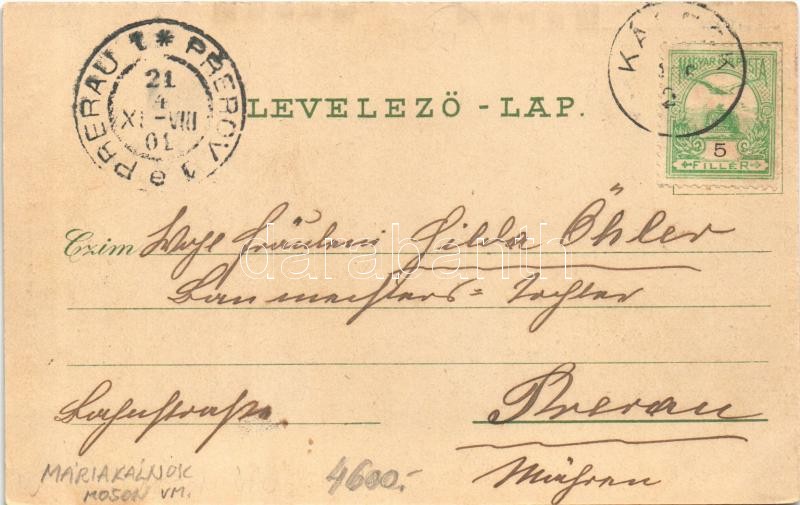 PRERAU 1 * PŘEROV 1
21
4
XI-VIII
01
LEVELEZŐ - LAP.
MAGYAR KIR. POSTA
5
FILLÉR
Czim Wohl Fräulein Hilda Öhler
Baumeisters = Tochter
Bahnstraße Prerau
Mähren
MÁRIAKÁLNOK
MOSON VM.
4600.-
darabanth